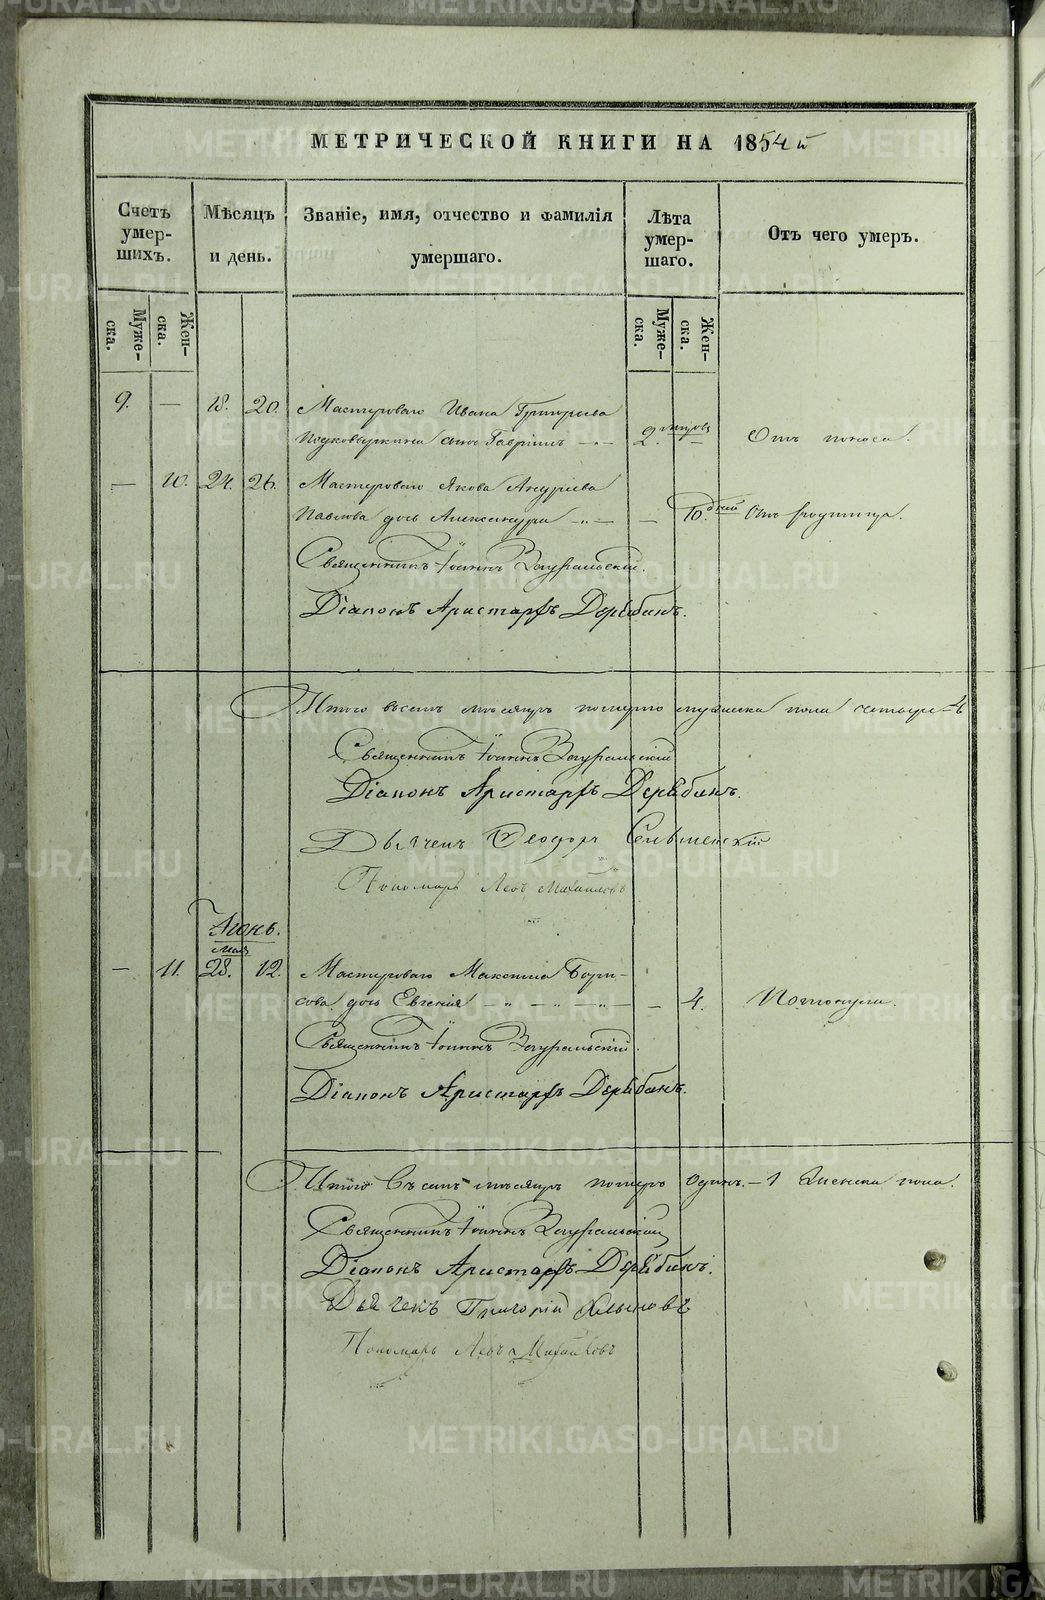 МЕТРИЧЕСКОЙ КНИГИ НА 1854й
Счетъ умер-шихъ.
Мѣсяцъ и день.
Званіе, имя, отчество и фамилія умершаго.
Лѣта умер-шаго.
Отъ чего умеръ.
Муже-ска.
Жен-ска.
Муже-ска.
Жен-ска.
9. — 18. 20. Мастероваго Ивана Григорьева
сынъ Гавріилъ — 2. Отъ поноса.
— 10. 24. 26. Мастероваго Якова Андреева
Павлова дочь Александра „ — — 10. дней Отъ родимца.
Священникъ Іоаннъ Зауральскій.
Діаконъ Аристархъ Дерябинъ.
Итого въ семъ мѣсяцѣ померло мужеска пола четыре — 4
Священникъ Іоаннъ Зауральскій
Діаконъ Аристархъ Дерябинъ.
Дьячекъ Ѳеодоръ
Пономарь Левъ Михайловъ
Іюнь.
мая
— 11. 28. 12. Мастероваго Максима Бори-
сова дочь Евгенія — „ — „ — „ — — 4. Потонула.
Священникъ Іоаннъ Зауральскій.
Діаконъ Аристархъ Дерябинъ.
Итого въ семъ мѣсяцѣ померъ одинъ. — 1 женска пола.
Священникъ Іоаннъ Зауральскій
Діаконъ Аристархъ Дерябинъ.
Дьячекъ Григорій Хлыновъ
Пономарь Левъ Михайловъ
METRIKI.GASO-URAL.RU